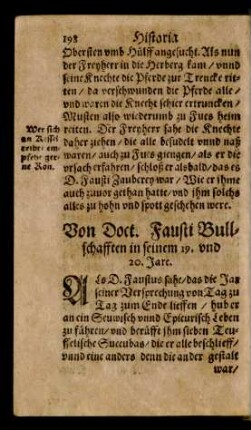 198 Historia
Obersten vmb Hülff angesucht. Als nun
der Freyherr in die Herberg kam / vnnd
seine Knechte die Pferde zur Trencke rit-
ten / da verschwunden die Pferde alle /
vnd waren die Knecht schier ertruncken /
Musten also wiederumb zu Fues heim
reiten. Der Freyherr sahe die Knechte
daher ziehen / die alle besudelt vnnd naß
waren / auch zu Fues giengen / als er die
vrsach erfahren / schloß er alsbald / das es
D. Fausti Zauberey war / Wie er ihme
auch zuuor gethan hatte / vnd ihm solchs
alles zu hohn vnd spott geschehen were.
Wer sich
an Kessel
reibt / em-
pfehet ger-
ne Ram.
Von Doct. Fausti Bull-
schafften in seinem 19. vnd
20. Jare.
ALs D. Faustus sahe / das die Jar
seiner Versprechung von Tag zu
Tag zum Ende lieffen / hub er
an ein Seuwisch vnnd Epicurisch Leben
zu führen / vnd berüfft ihm sieben Teu-
felische Succubas / die er alle beschlieff /
vnnd eine anders denn die ander gestalt
war /